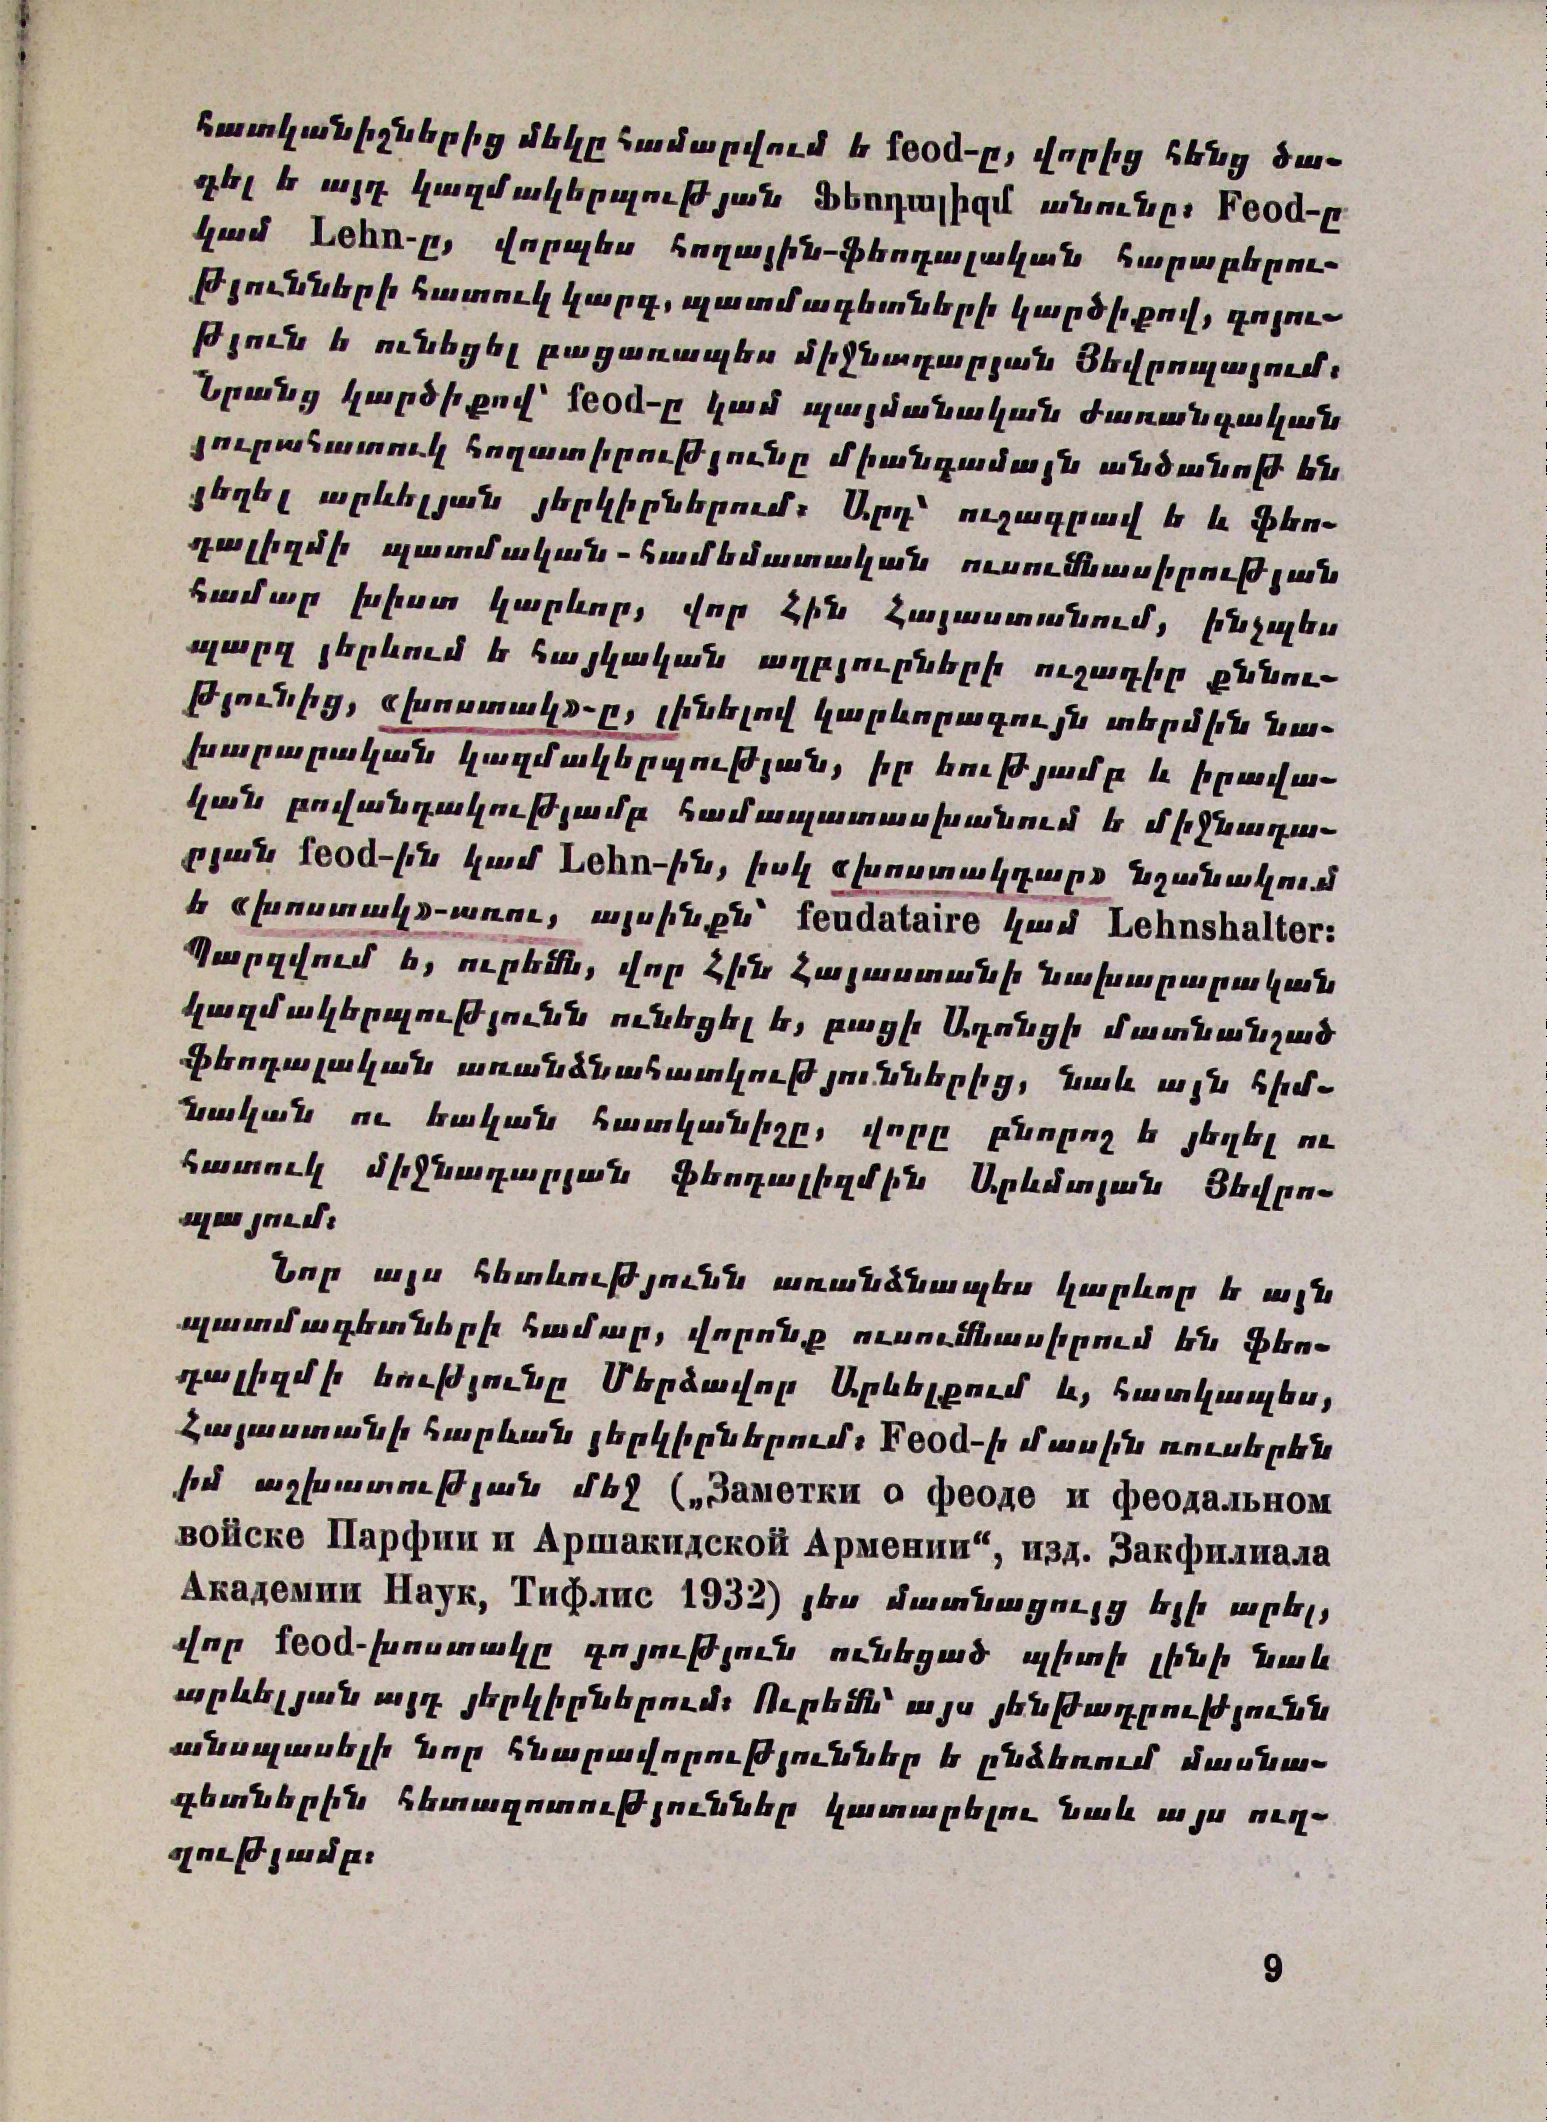 հատկանիշներից մեկը համարվում ե feod-ը, վորից հենց ծա-
գել ե այդ կազմակերպության Ֆեոդալիզմ անունը: Feod-ը
կամ Lehn-ը, վորպես հողային-ֆեոդալական հարաբերու-
թյունների հատուկ կարգ, պատմագետների կարծիքով, գոյու-
թյուն ե ունեցել բացառապես միջնադարյան Յեվրոպայում:
Նրանց կարծիքով՝ feod-ը կամ պայմանական ժառանգական
յուրահատուկ հողատիրությունը միանգամայն անծանոթ են
յեղել արևելյան յերկիրներում: Արդ՝ ուշագրավ ե և ֆեո-
դալիզմի պատմական-համեմատական ուսումնասիրության
համար խիստ կարևոր, վոր Հին Հայաստանում, ինչպես
պարզ յերևում ե հայկական աղբյուրների ուշադիր քննու-
թյունից, «խոստակ»-ը, լինելով կարևորագույն տերմին նա-
խարարական կազմակերպության, իր եությամբ և իրավա-
կան բովանդակությամբ համապատասխանում ե միջնադա-
րյան feod-ին կամ Lehn-ին, իսկ «խոստակդար» նշանակում
ե «խոստակ»-առու, այսինքն՝ feudataire կամ Lehnshalter:
Պարզվում ե, ուրեմն, վոր Հին Հայաստանի նախարարական
կազմակերպությունն ունեցել ե, բացի Ադոնցի մատնանշած
ֆեոդալական առանձնահատկություններից, նաև այն հիմ-
նական ու եական հատկանիշը, վորը բնորոշ ե յեղել ու
հատուկ միջնադարյան ֆեոդալիզմին Արևմտյան Յեվրո-
պայում:
Նոր այս հետևությունն առանձնապես կարևոր ե այն
պատմագետների համար, վորոնք ուսումնասիրում են ֆեո-
դալիզմի եությունը Մերձավոր Արևելքում և, հատկապես,
Հայաստանի հարևան յերկիրներում: Feod-ի մասին ռուսերեն
իմ աշխատության մեջ („Заметки о феоде и феодальном
войске Парфии и Аршакидской Армении“, изд. Закфилиала
Академии Наук, Тифлис 1932) յես մատնացույց եյի արել,
վոր feod-խոստակը գոյություն ունեցած պիտի լինի նաև
արևելյան այդ յերկիրներում: Ուրեմն՝ այս յենթադրությունն
անսպասելի նոր հնարավորություններ ե ընձեռում մասնա-
գետներին հետազոտություններ կատարելու նաև այս ուղ-
ղությամբ:
9